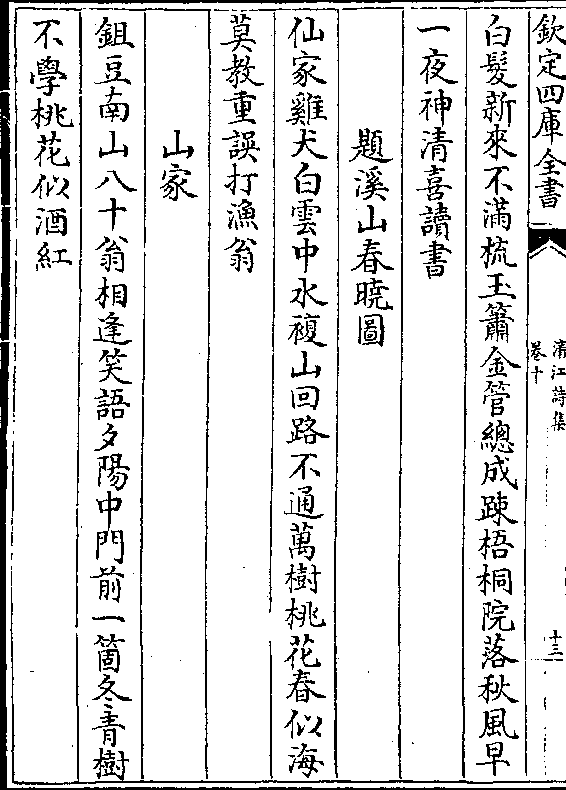 欽定四庫全書
清江詩集
卷十
十三
白髮新來不滿梳玉簫金管總成踈梧桐院落秋風早
一夜神清喜讀書
題溪山春曉圖
仙家雞犬白雲中水複山回路不通萬樹桃花春似海
莫教重誤打漁翁
山家
鉏豆南山八十翁相逢笑語夕陽中門前一箇冬青樹
不學桃花似酒紅